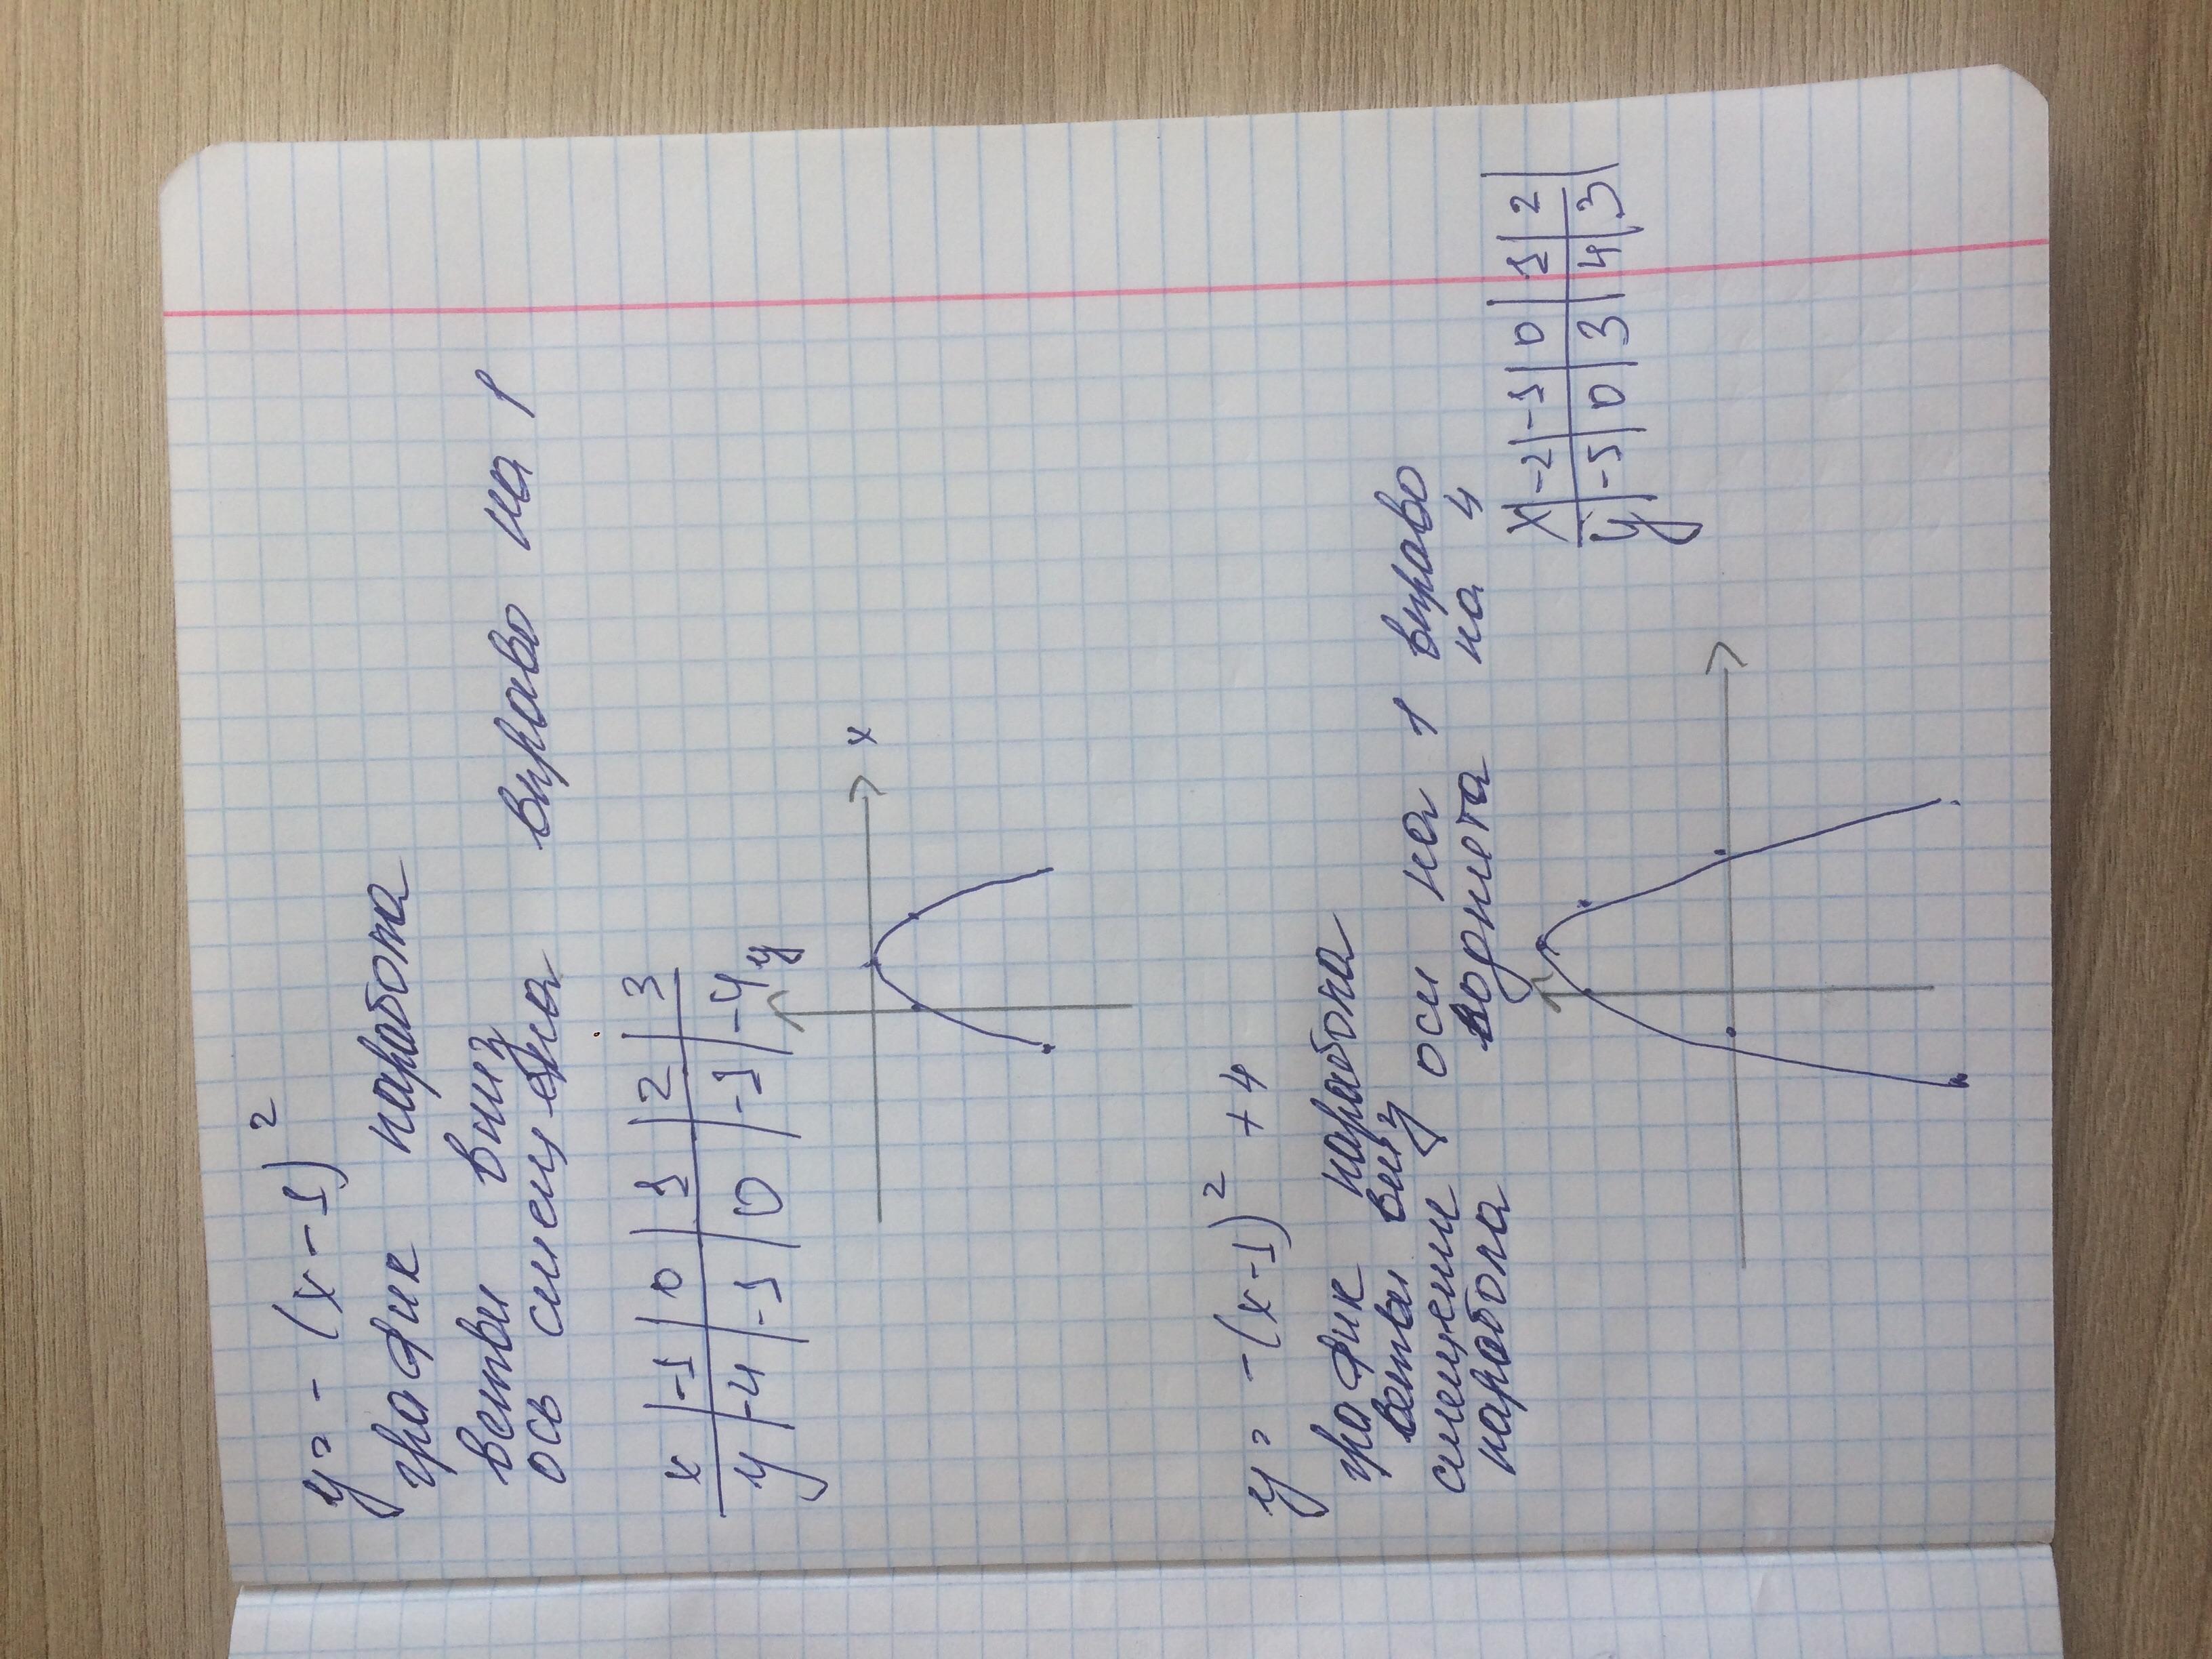 y = - (x - 1)²
график парабола
ветви вниз
ось смещена вправо на 1
x | -1 | 0 | 1 | 2 | 3
y | -4 | -1 | 0 | -1 | -4
y
x
y = - (x - 1)² + 4
график парабола
ветви вниз
смещение оси на 1 вправо
парабола поднета на 4
x | -2 | -1 | 0 | 1 | 2 |
y | -5 | 0 | 3 | 4 | 3 |